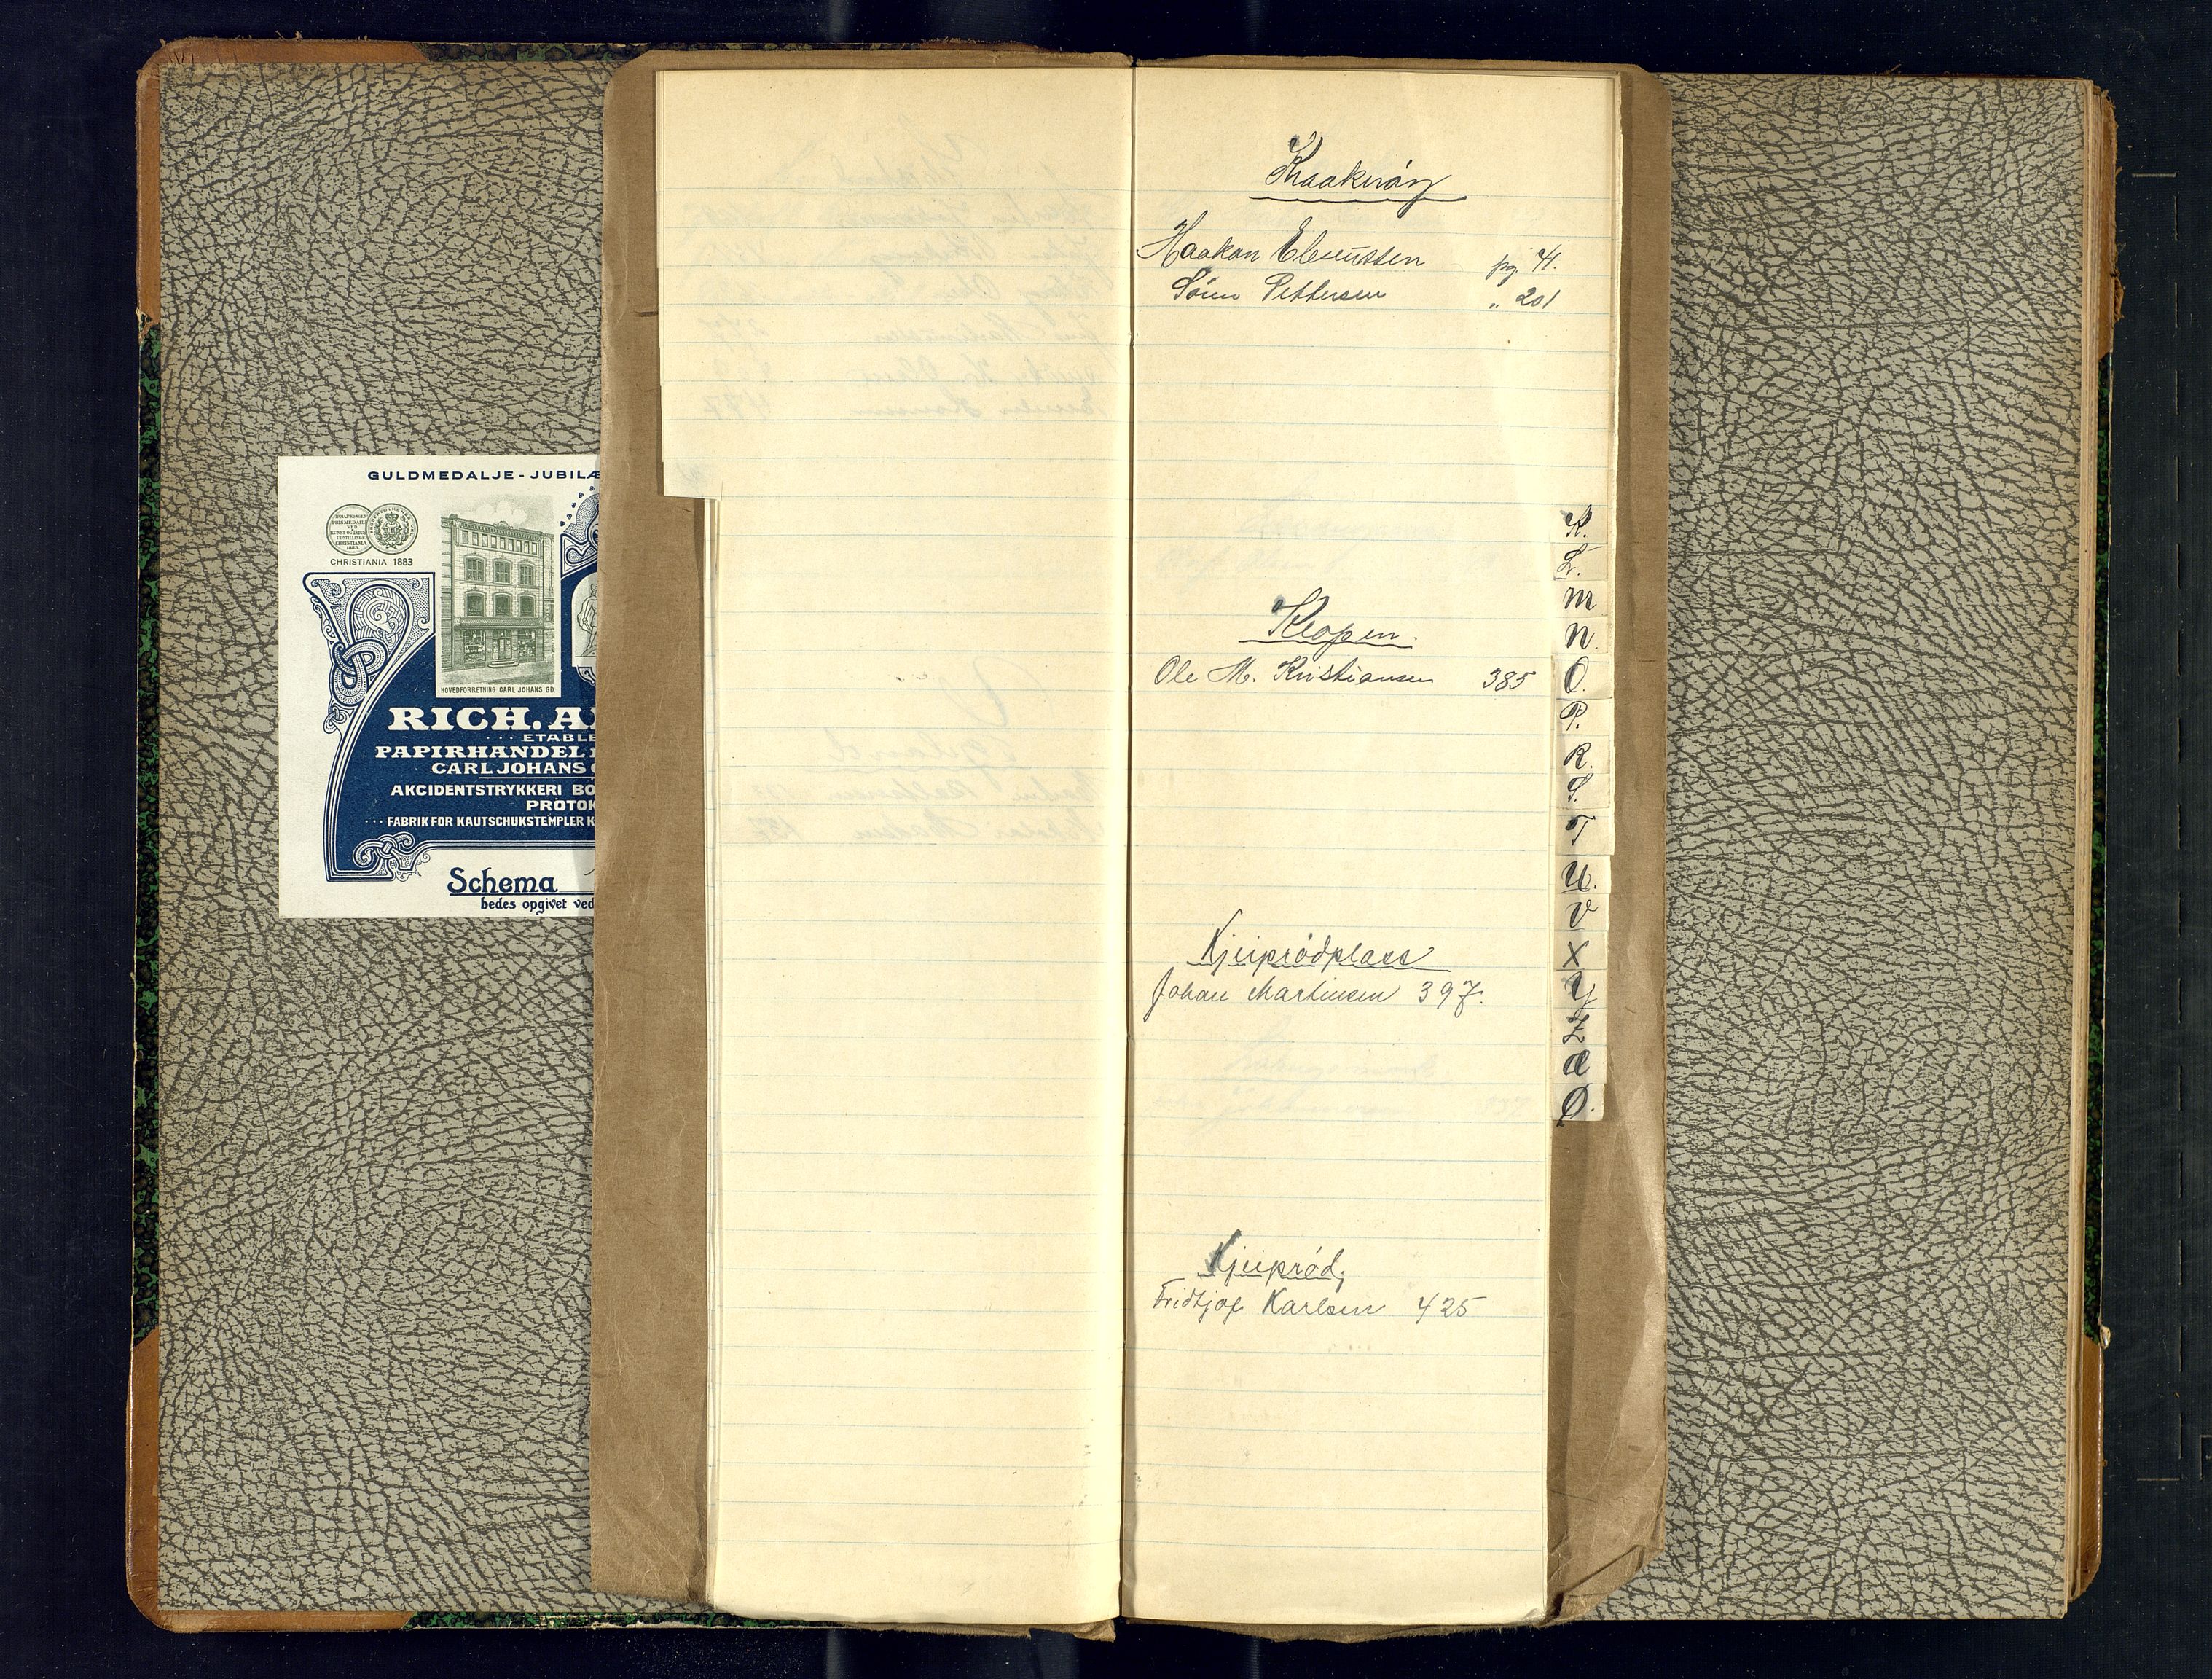 GULDMEDALJE - JUBILÆ
CHRISTIANIA 1883
HOVEDFORRETNING CARL JOHANS GD.
RICH. A
ETABLE
PAPIRHANDEL
CARL JOHANS
AKCIDENTSTRYKKERI BO
PROTOK
FABRIK FOR KAUTSCHUKSTEMPLER K
Schema
bedes opgivet ved
Haakon
pg. 41.
Pettersen " 201
Klopen.
Ole M. Kristiansen 385
Kjeiprödplass
Johan Martinsen 397.
Kjeipröd,
Fridtjof Karlsen 425
K.
L.
M
N.
O.
P.
R.
S.
T
U.
V
X
Y
Z
Æ
Ø.